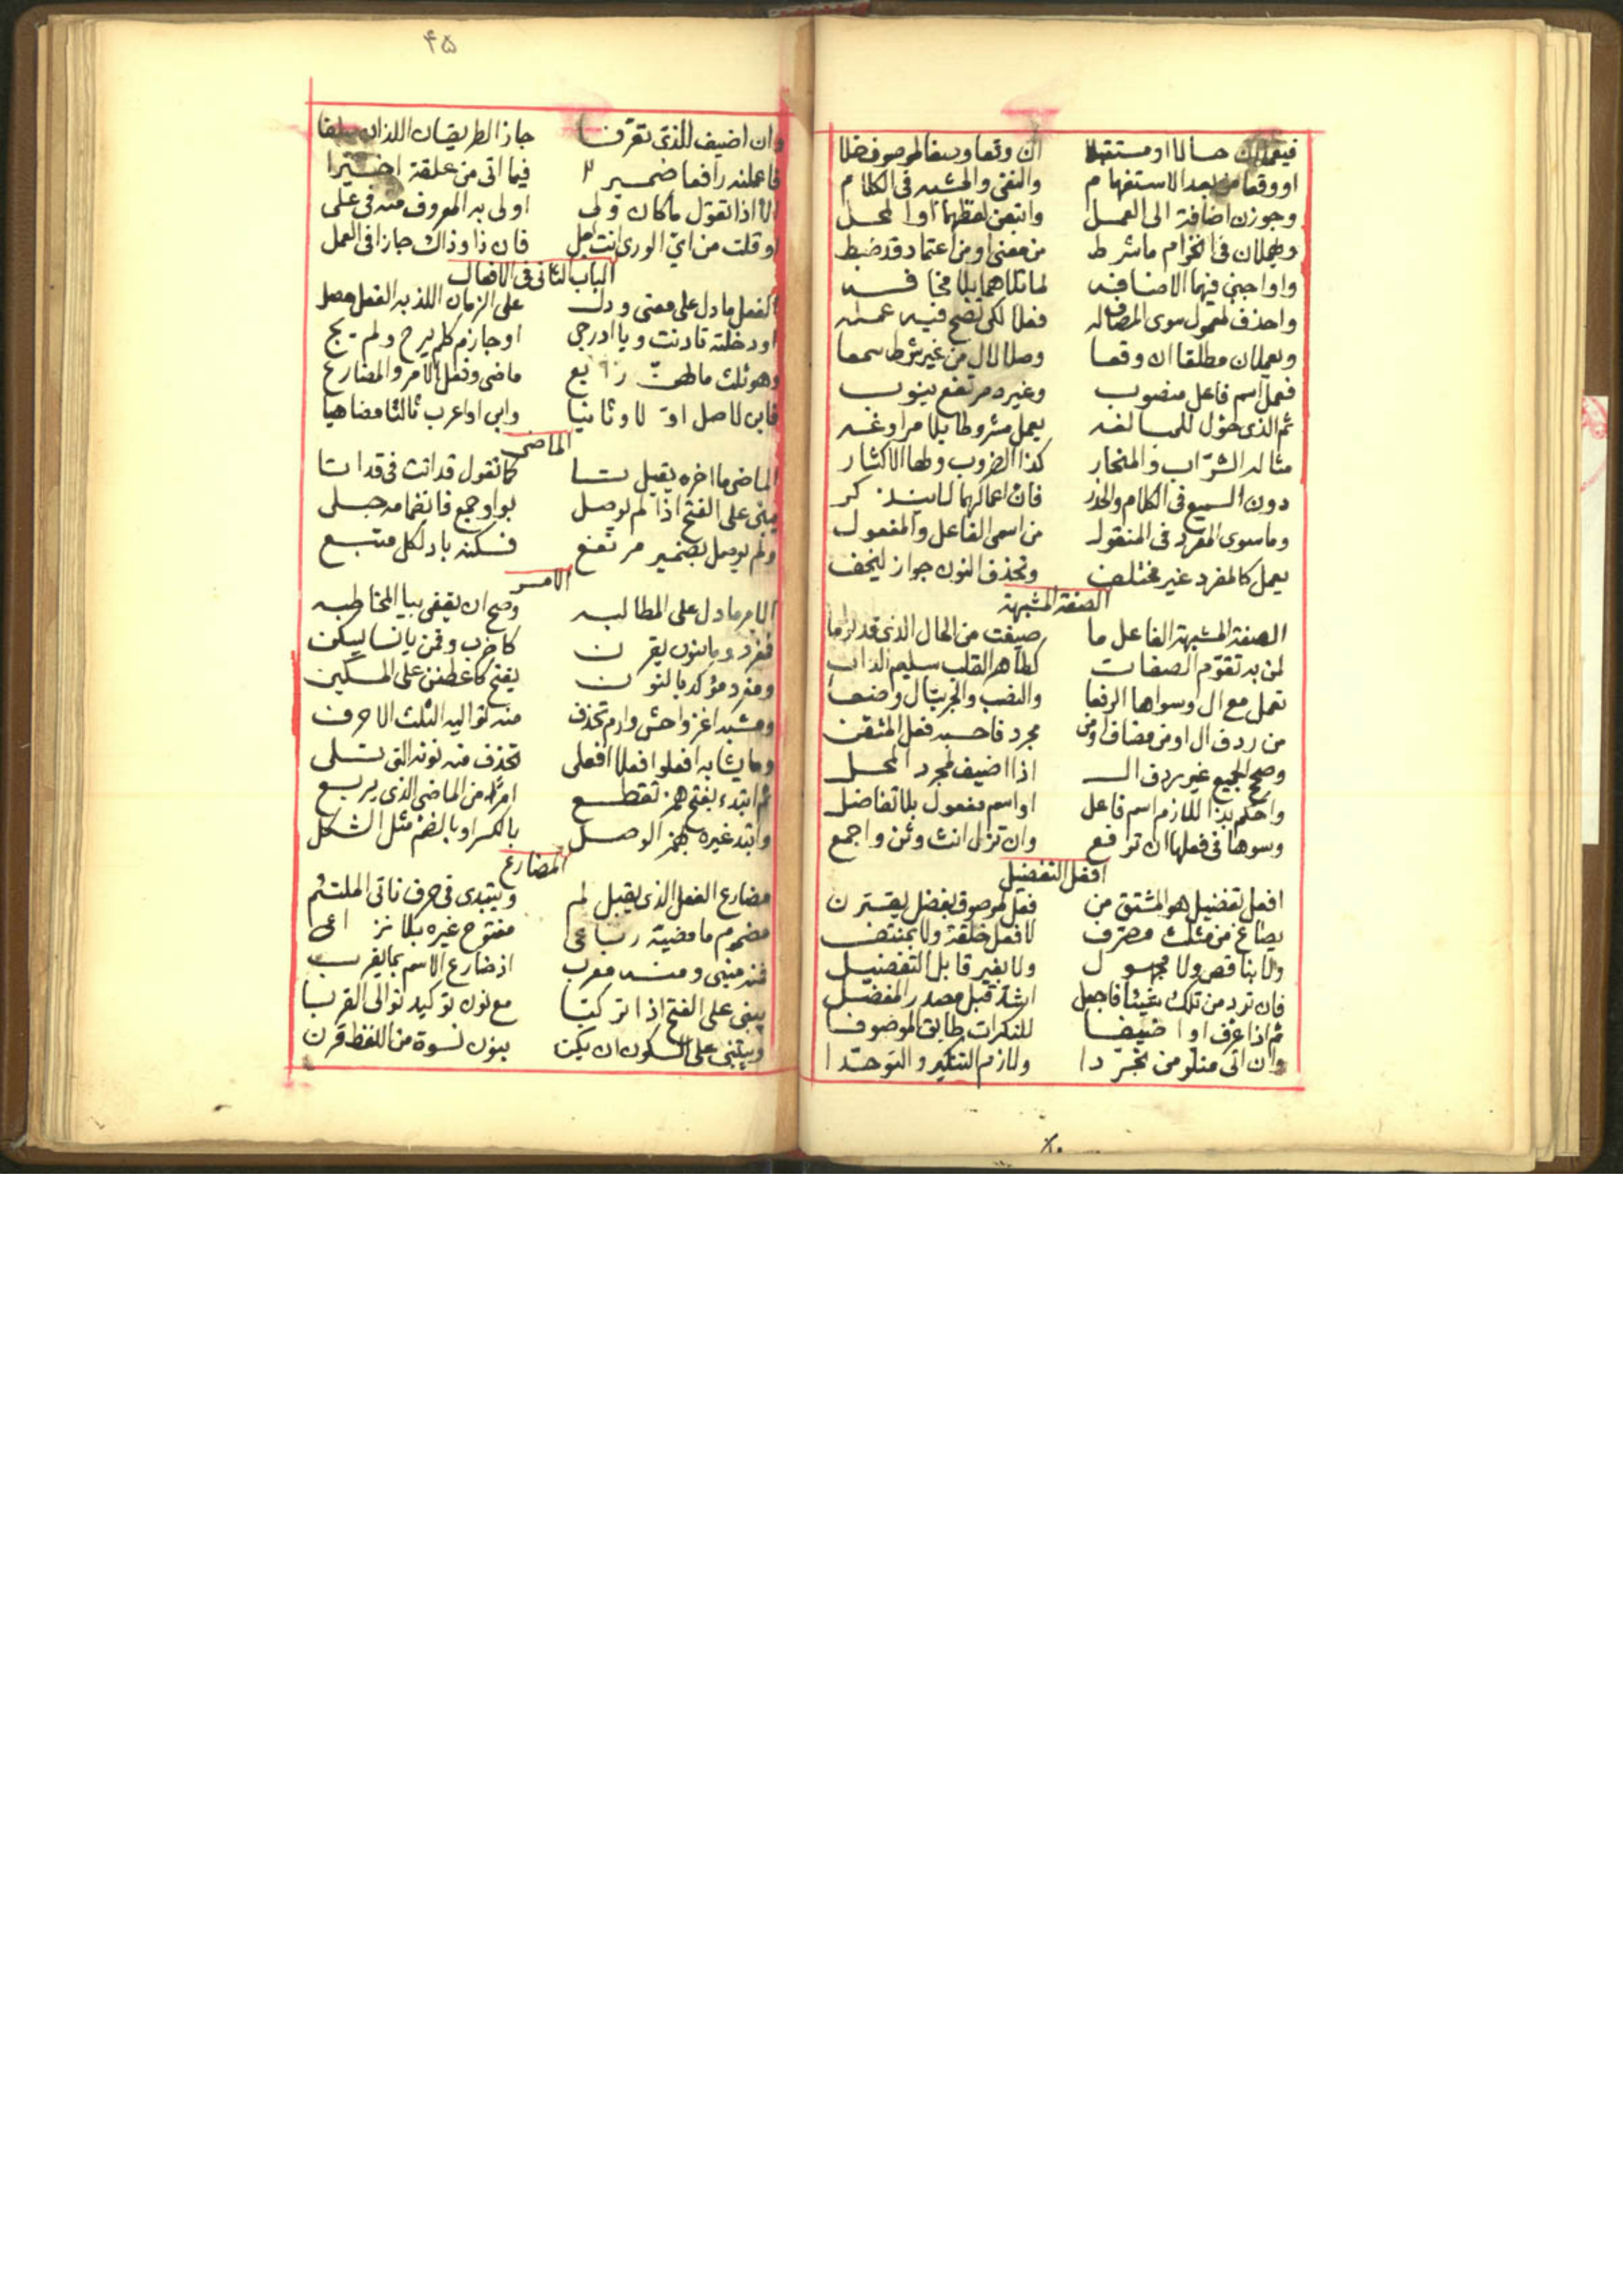 فيعملان حالا او مستقبلا ان وقعا وصفا لموصوف خلا
او وقعا من بعد الاستفهام والنفي والمشبه في الكلام
وجوزن اضافة الى العمل واتبعن لفظهما او المحل
ويهملان في انخرام ما شرط من معنى او من اعتماد قد ضبط
واواجبن فيهما الاضافه لما تلاهما بلا مخافه
واحذف لمعمول سوى المضاف له فعلا لكي تضح فيه عمله
ويعملان مطلقا ان وقعا وصلا لال من غير شرط سمعا
فعمل اسم فاعل منصوب وغيره مرتفع ينوب
ثم الذي حول للمبالغه يعمل مشروطا بلا مراوغه
مثاله الشراب والمنحار كذا الضروب ولها الاكثار
دون السميع في الكلام والحذر فان اعمالهما لا يندر
وما سوى المفرد في المنقول من اسمي الفاعل والمفعول
يعمل كالمفرد غير مختلف وتحذف النون جواز ليخف
الصفة المشبهة
الصفة المشبهة الفاعل ما صيغت من الحال الذي قد لزما
لمن به تقوم الصفات كطاهر القلب سليم الذات
تعمل مع ال وسواها الرفعا والنصب والجر بال وضعا
من ردف ال او من مضاف او من مجرد فاحسبه فعل المتقن
وصح الجميع غير ردف ال اذا اضيف لمجرد المحل
واحكم بذا للازم اسم فاعل او اسم مفعول بلا تفاضل
وسوها في فعلها ان ترفع وان تزل انث وثن واجمع
افعل التفضيل
افعل تفضيل هو المشتق من فعل لموصوف بفضل يقترن
يصاغ من مثلث مصرف لا فعل خلقة ولا بمنتف
ولا بناقص ولا مجهول ولا بغير قابل التفضيل
فان ترد من تلك شيئا فاجعل اشد قبل مصدر المفضل
ثم اذا عرف او اضيفا للنكرات طابق الموصوفا
وان اتى متلو من تجردا ولازم التنكير والتوحدا
۴۵
وان اضيف للذي تعرفا جاز الطريقان اللذان سلفا
فاعملنه رافعا ضمير فيما اتى من علقة اخيرا
الا اذا تقول ما كان ولي اولى به المعروف منه في علي
او قلت من اي الورى انت اجل فان ذا وذاك جازا في العمل
الباب الثاني في الافعال
الفعل ما دل على معنى ودل على الزمان اللذ به الفعل حصل
او دخلته تا دنت ويا ادرجي او جازم كلم يرح ولم يج
وهو ثلث ما لهن رابع ماضى وفعل الامر والمضارع
فابن لاصل اولا وثانيا وابن او اعرب ثالثا مضاهيا
الماضى
الماضي ما اخره يقبل تا كما تقول قد اتت في قد اتا
يبنى على الفتح اذا لم يوصل بواو جمع فانضمامه جلي
ولم يوصل بضمير مرتفع فسكنه باد لكل متبع
الامر
الامر ما دل على المطالبه وصح ان يقفى بيا المخاطبه
فمفرد وما بنون يقرن كاضرب وقمن يا نسا يسكن
ومفرد مؤكد بالنون يفتح كاعطفن على المسكين
وشبه اغز واخش وارم تحذف منه تواليه الثلث الاحرف
وما يشابه افعلوا افعلا افعلي تحذف منه نونه التي تلي
ثم ابتدء بفتح همز تقطع امرا من الماضي الذي يربع
وابتد غيره بهمز الوصل بالكسر او بالضم مثل الشكل
المضارع
مضارع الفعل الذي يقبل لم ويبتدى في حرف ناتي الملتئم
مضموم ما مضيه رباعي مفتوح غيره بلا نزاعي
فمنه مبنى ومنه معرب اذ ضارع الاسم بما يقرب
يبنى على الفتح اذا تركبا مع نون توكيد توالى القربا
ويبتنى على السكون ان يكن بنون نسوة من اللفظ قرن